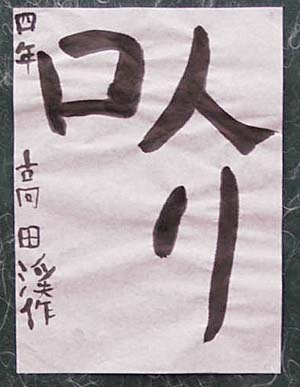 入り
口
四年 高田渓作